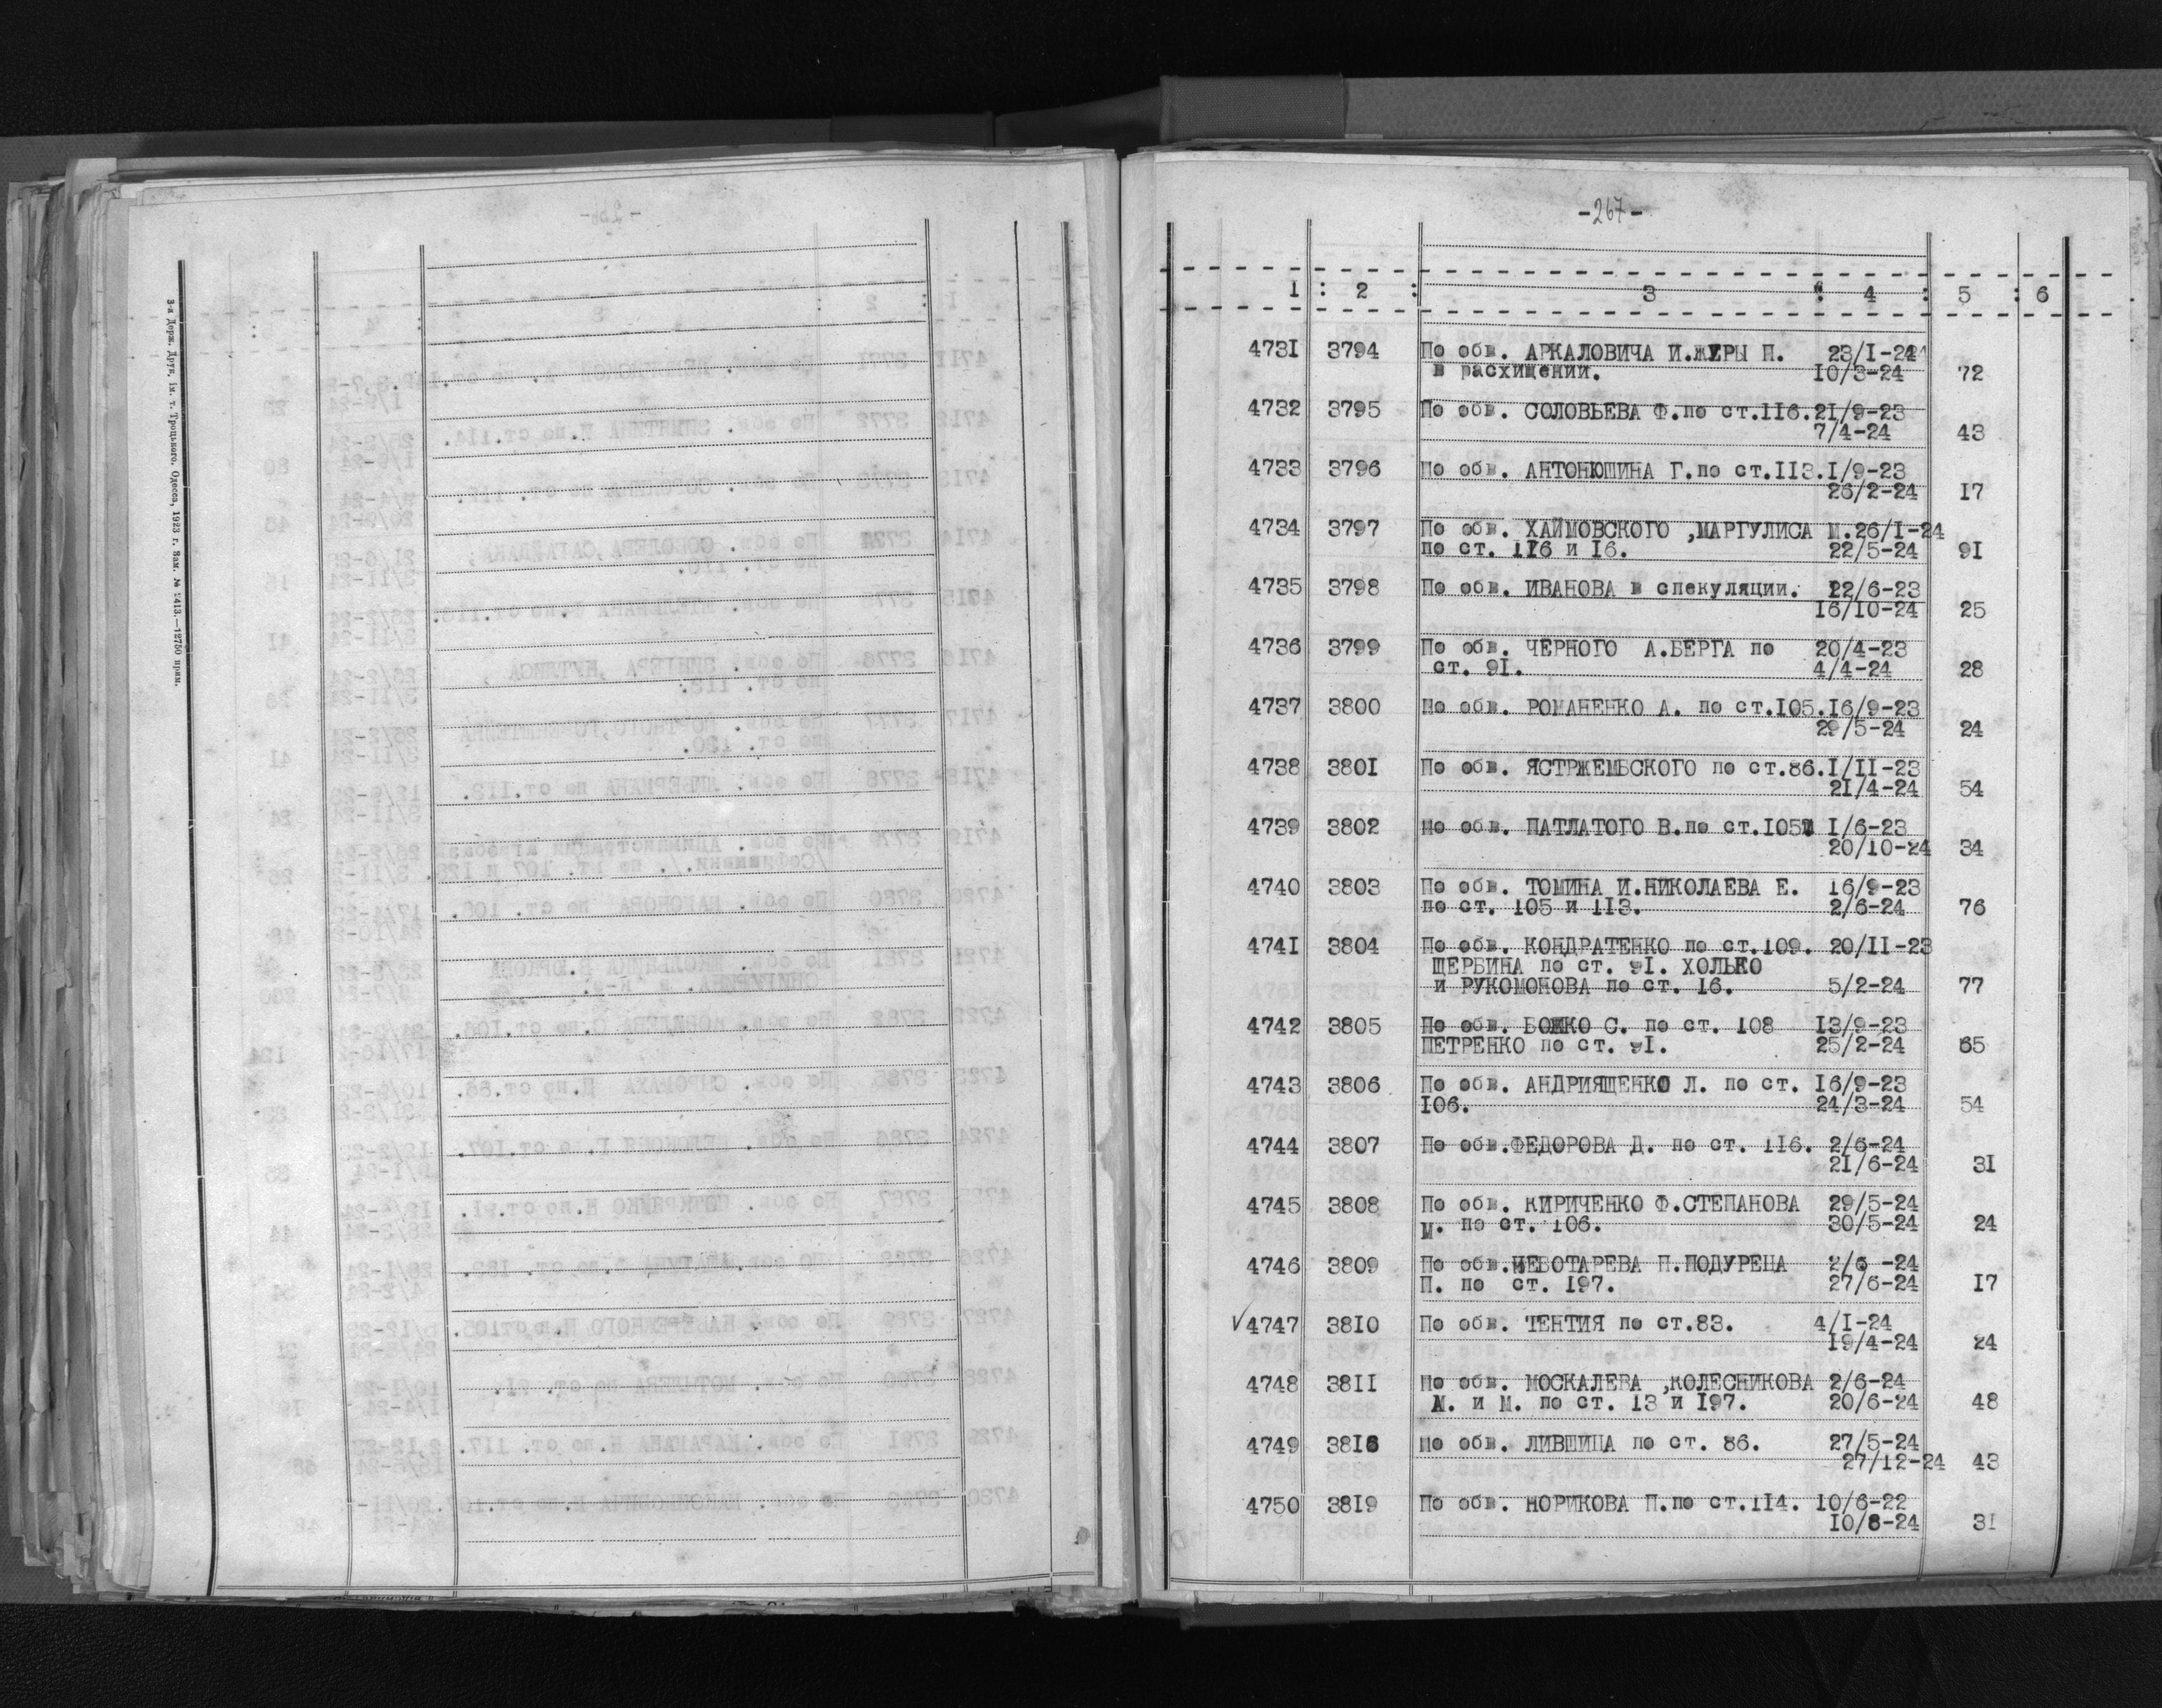 3-я Держ. Друк. ім. т. Троцького. Одесса, 1923 г. Зам. № 2413.—12750 прим.
-267-
1 : 2 : 3 : 4 : 5 : 6
4731 3794 По обв. АРКАЛОВИЧА И.ЖЕРЫ П. 23/I-24
в расхищении. 10/3-24 72
4732 3795 По обв. СОЛОВЬЕВА Ф.по ст.116.21/9-23
7/4-24 43
4733 3796 По обв. АНТОНЮШИНА Г.по ст.113.I/9-23
26/2-24 17
4734 3797 По обв. ХАЙМОВСКОГО ,МАРГУЛИСА М.26/I-24
по ст. 116 и 16. 22/5-24 91
4735 3798 По обв. ИВАНОВА в спекуляции. 22/6-23
16/10-24 25
4736 3799 По обв. ЧЕРНОГО А.БЕРГА по 20/4-23
ст. 91. 4/4-24 28
4737 3800 По обв. РОМАНЕНКО А. по ст.105.16/9-23
29/5-24 24
4738 3801 По обв. ЯСТРЖЕМБСКОГО по ст.86.I/II-23
21/4-24 54
4739 3802 По обв. ПАТЛАТОГО В.по ст.105 I/6-23
20/10-24 34
4740 3803 По обв. ТОМИНА И.НИКОЛАЕВА Е. 16/9-23
по ст. 105 и 113. 2/6-24 76
4741 3804 По обв. КОНДРАТЕНКО по ст.109. 20/II-23
ЩЕРБИНА по ст. 91. ХОЛЬКО
и РУКОМОНОВА по ст. 16. 5/2-24 77
4742 3805 По обв. БОЖКО С. по ст. 108 13/9-23
ПЕТРЕНКО по ст. 91. 25/2-24 65
4743 3806 По обв. АНДРИЯЩЕНКО Л. по ст. 16/9-23
106. 24/3-24 54
4744 3807 По обв.ФЕДОРОВА Д. по ст. 116. 2/6-24
21/6-24 31
4745 3808 По обв. КИРИЧЕНКО Ф.СТЕПАНОВА 29/5-24
М. по ст. 106. 30/5-24 24
4746 3809 По обв.ЧЕБОТАРЕВА П.ПОДУРЕЦА 2/6 -24
П. по ст. 197. 27/6-24 17
√ 4747 3810 По обв. ТЕНТИЯ по ст.83. 4/I-24
19/4-24 24
4748 3811 По обв. МОСКАЛЕВА ,КОЛЕСНИКОВА 2/6-24
А. и М. по ст. 13 и 197. 20/6-24 48
4749 3816 По обв. ЛИВШИЦА по ст. 86. 27/5-24
27/12-24 43
4750 3819 По обв. НОРИКОВА П.по ст.114. 10/6-22
10/8-24 31